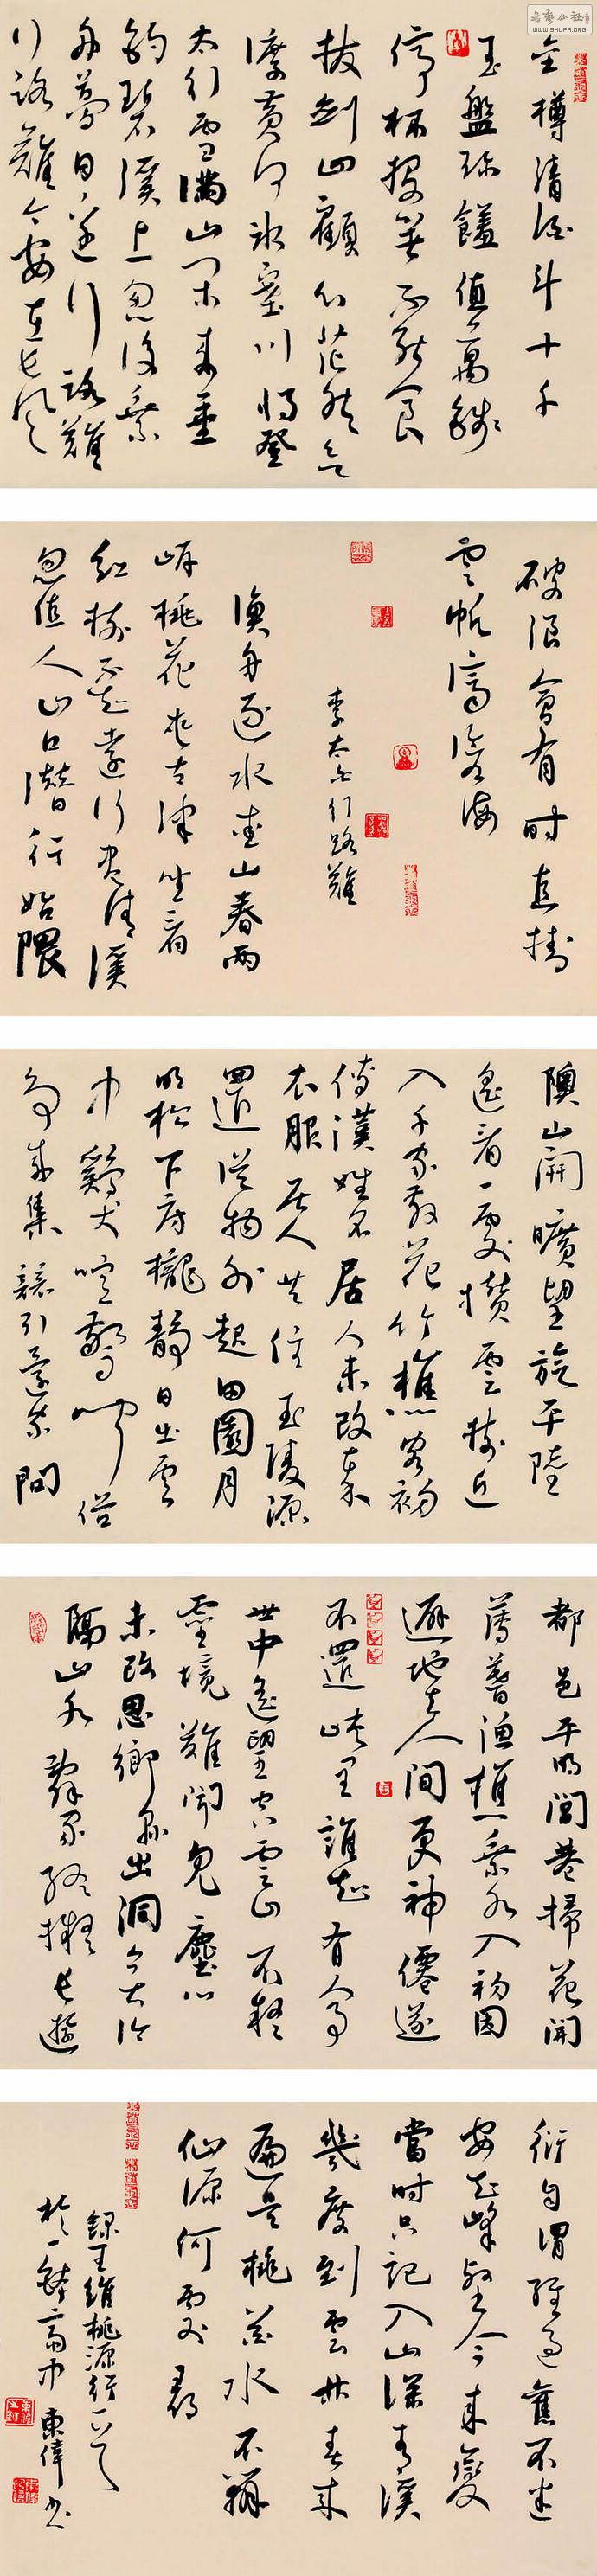 金樽清酒斗十千
玉盤珍饈值萬錢
停杯投箸不能食
拔劍四顧心茫然欲
渡黃河冰塞川將登
太行雪滿山閑來垂
釣碧溪上忽復乘
舟夢日邊行路難
行路難今安在長風
破浪會有時直掛
雲帆濟滄海
李太白行路難
漁舟逐水愛山春兩
岸桃花夾古津坐看
紅樹不知遠行盡清溪
忽值人山口潛行始隈
隩山開曠望旋平陸
遙看一處攢雲樹近
入千家散花竹樵客初
傳漢姓名居人未改秦
衣服居人共住武陵源
還從物外起田園月
明松下房櫳靜日出雲
中雞犬喧驚聞俗
爭來集競引還家問
都邑平明閭巷掃花開
薄暮漁樵乘水入初因
避地去人間更神僊遂
不還峽裏誰知有人事
世中遙望空雲山不疑
靈境難聞見塵心
未改思鄉縣出洞今大
隔山水辭家終擬長遊
衍自謂經過舊不迷
安知峰壑今來變
當時只記入山深青溪
幾度到雲林春來
遍是桃花水不辨
仙源何處尋
錄王維桃源行一首
於一齋中 東偉書
書藝公社
WWW.SHUFA.ORG